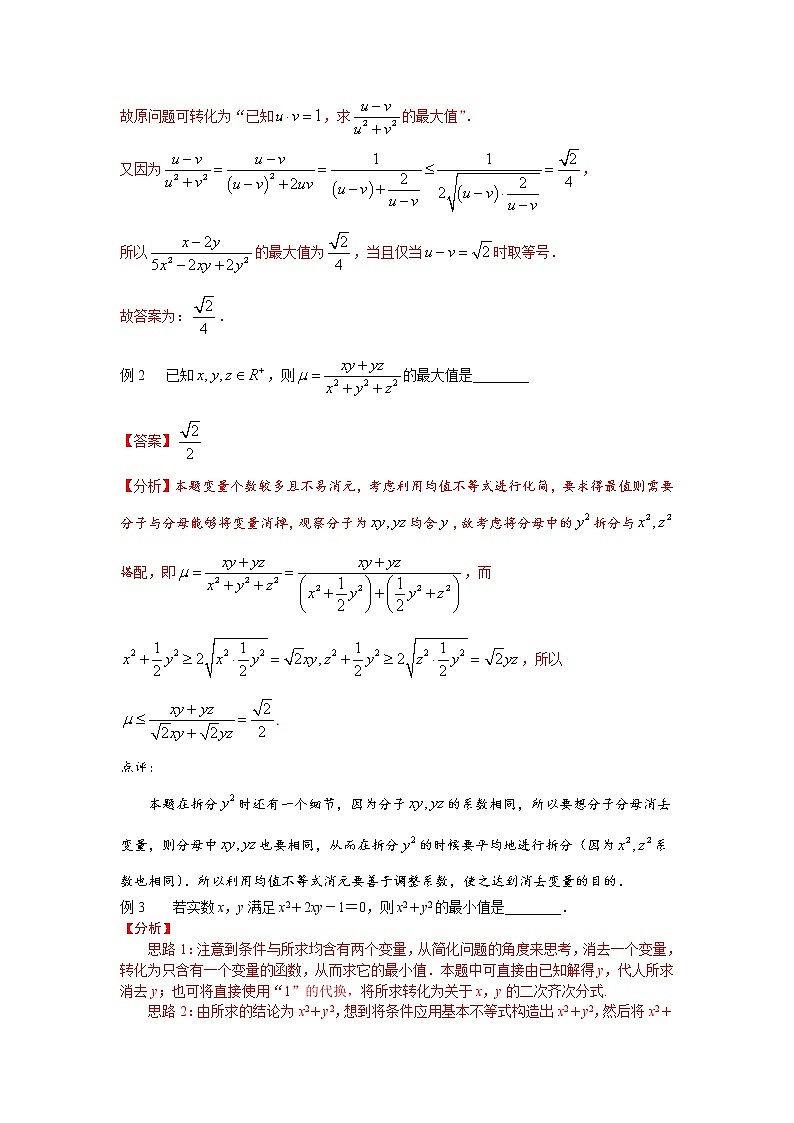 故原问题可转化为“已知u·v=1,求 (u−v)/(u²+v²) 的最大值”.
又因为 (u−v)/(u²+v²) = (u−v)/((u−v)²+2uv) = 1/((u−v)+2/(u−v)) ≤ 1/(2√((u−v)·2/(u−v))) = √2/4,
所以 (x−2y)/(5x²−2xy+2y²) 的最大值为 √2/4,当且仅当u−v=√2时取等号.
故答案为: √2/4.
例2 已知x,y,z∈R⁺,则μ=(xy+yz)/(x²+y²+z²) 的最大值是________
【答案】√2/2
【分析】本题变量个数较多且不易消元,考虑利用均值不等式进行化简,要求得最值则需要
分子与分母能够将变量消掉,观察分子为xy,yz均含y,故考虑将分母中的y²拆分与x²,z²
搭配,即μ=(xy+yz)/(x²+y²+z²)=(xy+yz)/((x²+1/2y²)+(1/2y²+z²)),而
x²+1/2y²≥2√(x²·1/2y²)=√2xy,z²+1/2y²≥2√(z²·1/2y²)=√2yz,所以
μ≤(xy+yz)/(√2xy+√2yz)=√2/2.
点评:
本题在拆分y²时还有一个细节,因为分子xy,yz的系数相同,所以要想分子分母消去
变量,则分母中xy,yz也要相同,从而在拆分y²的时候要平均地进行拆分(因为x²,z²系
数也相同).所以利用均值不等式消元要善于调整系数,使之达到消去变量的目的.
例3 若实数x,y满足x²+2xy-1=0,则x²+y²的最小值是________.
【分析】
思路1:注意到条件与所求均含有两个变量,从简化问题的角度来思考,消去一个变量,
转化为只含有一个变量的函数,从而求它的最小值.本题中可直接由已知解得y,代人所求
消去y;也可将直接使用“1”的代换,将所求转化为关于x,y的二次齐次分式.
思路2:由所求的结论为x²+y²,想到将条件应用基本不等式构造出x²+y²,然后将x²+